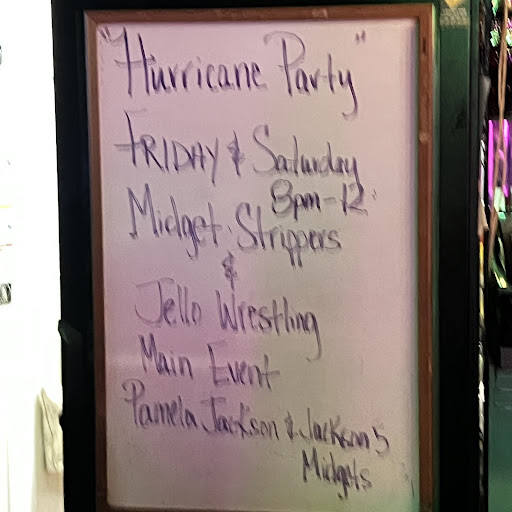 "Hurricane Party"
FRIDAY & Saturday
8pm-12
Midget Strippers
&
Jello Wrestling
Main Event
Pamela Jackson & Jackson 5
Midgets